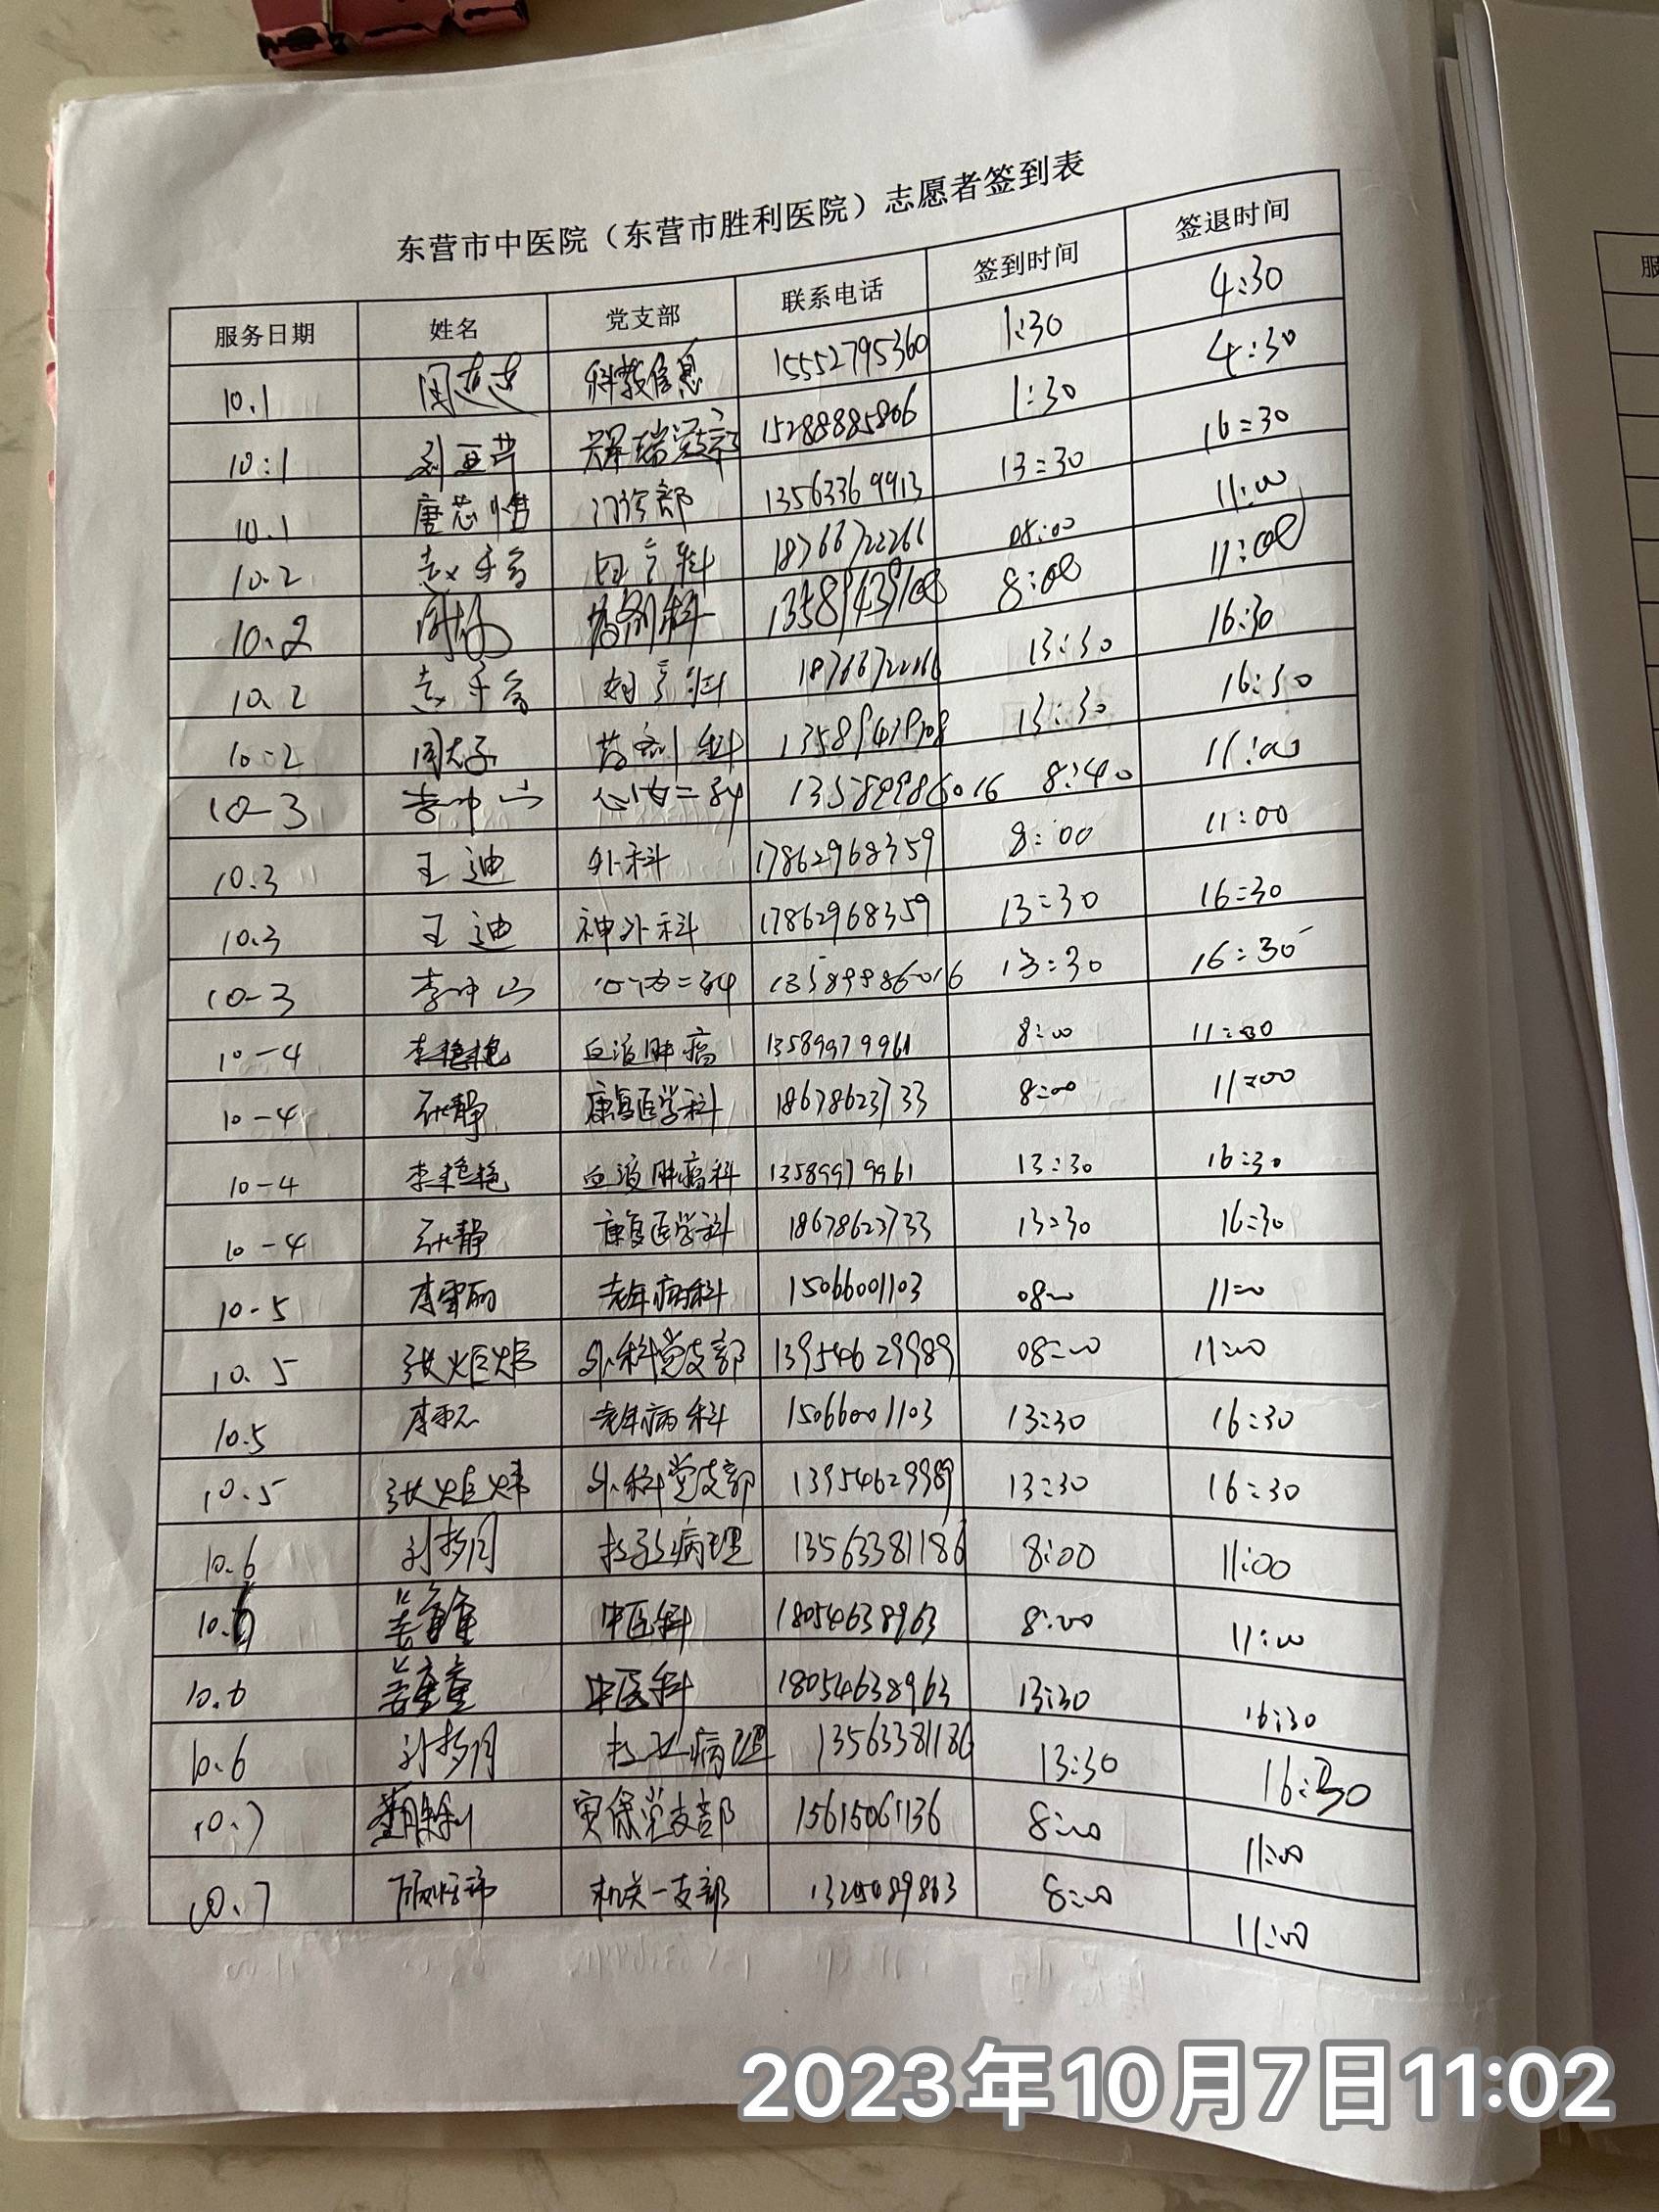 东营市中医院（东营市胜利医院）志愿者签到表
服务日期 姓名 党支部 联系电话 签到时间 签退时间
10.1 科教信息 15552795360 1:30 4:30
10:1 15288885806 1:30 4:30
10.1 唐芯 门诊部 13563369913 13:30 16:30
10.2 科 18766722266 08:00 11:00
10.2 药剂科 8:00 11:00
10.2 科 18766722266 13:30 16:30
10.2 药剂科 13:30 16:30
10-3 李中山 8:40 11:00
10.3 王迪 外科 17862968359 8:00 11:00
10.3 王迪 神外科 17862968359 13:30 16:30
10-3 李中山 13589986016 13:30 16:30
10-4 李艳艳 血液肿瘤 13589979961 8:00 11:00
10-4 张静 康复医学科 18678623733 8:00 11:00
10-4 李艳艳 血液肿瘤科 13589979961 13:30 16:30
10-4 张静 康复医学科 18678623733 13:30 16:30
10-5 李雪丽 老年病科 15066001103 08:00 11:00
10.5 张炬炜 外科党支部 13954629989 08:00 11:00
10.5 老年病科 15066001103 13:30 16:30
10.5 张炬炜 外科党支部 13954629989 13:30 16:30
10.6 刘梦月 病理 13563381186 8:00 11:00
10.6 中医科 18054638963 8:00 11:00
10.6 中医科 18054638963 13:30 16:30
10.6 刘梦月 病理 13563381186 13:30 16:30
10.7 党支部 15615061136 8:00 11:00
10.7 机关一支部 8:00 11:00
服
2023年10月7日11:02